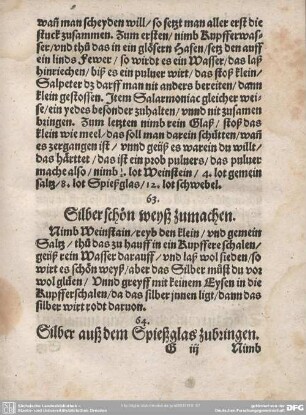 wañ man scheyden will / so setzt man aller erst die
stuck zusammen. Zum ersten / nimb Kupfferwas-
ser / vnd thů das in ein glösern Hafen / setz den auff
ein linds Fewer / so wirdt es ein Wasser / das laß
hinriechen / biß es ein puluer wirt / das stoß klein /
Salpeter dz darff man nit anders bereiten / dann
klein gestossen. Item Salarmoniac gleicher wei-
se / ein yedes besonder zůbalten / vnnd nit zusamen
bringen. Zum letzten nimb rein Glaß / stoß das
klein wie meel / das soll man darein schütten / wañ
es zergangen ist / vnnd geüß es warein du willt /
das härttet / das ist ein prob puluers / das puluer
mache also / nimb lot Weinstein / 4. lot gemein
saltz / 8. lot Spießglas / 12. lot schwebel.
63.
Silber schön weyß zumachen.
Nimb Weinstain / reyb den klein / vnd gemein
Saltz / thů das zu hauff in ein Kupffere schalen /
geüß rein Wasser darauff / vnd laß wol sieden / so
wirt es schön weyß / aber das Silber můst du vor
wol glüen / Vnnd greyff mit keinem Eysen in die
Kupfferschalen / da das silber jnnen ligt / dann das
silber wirt rodt daruon.
64.
Silber auß dem Spießglas zubringen.
G iij Nimb